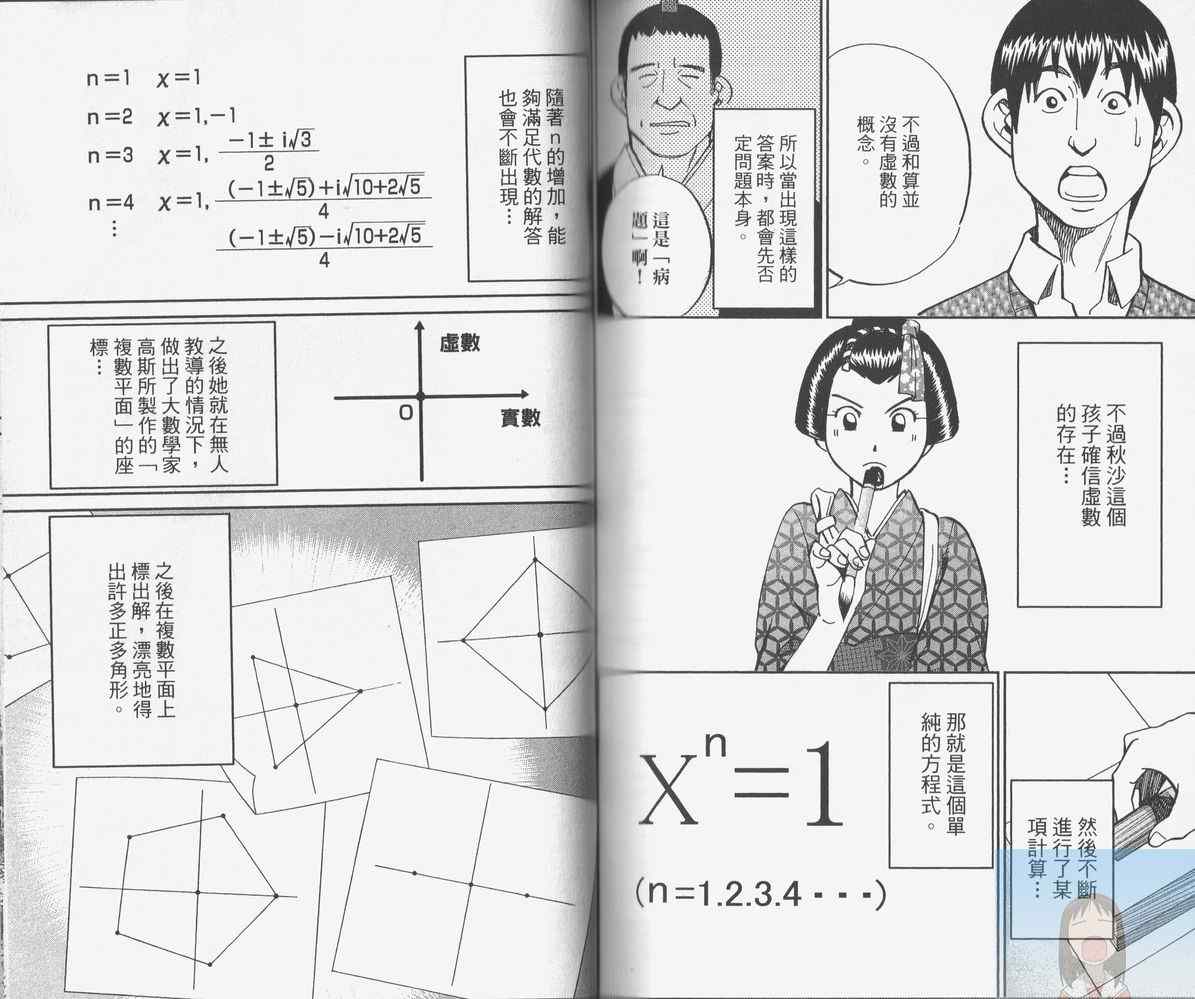 不過和算並
沒有虛數的
概念。
所以當出現這樣的
答案時，都會先否
定問題本身。
這是「病
題」啊！
不過秋沙這個
孩子確信虛數
的存在…
然後不斷
進行了某
項計算…
那就是這個單
純的方程式。
xⁿ=1
(n=1.2.3.4・・・)
隨著n的增加，能
夠滿足代數的解答
也會不斷出現…
n=1 x=1
n=2 x=1,-1
n=3 x=1, (-1±i√3)/2
n=4 x=1, ((-1±√5)+i√(10+2√5))/4
⋮ ((-1±√5)-i√(10+2√5))/4
虛數
實數
O
之後她就在無人
教導的情況下，
做出了大數學家
高斯所製作的「
複數平面」的座
標…
之後在複數平面上
標出解，漂亮地得
出許多正多角形。